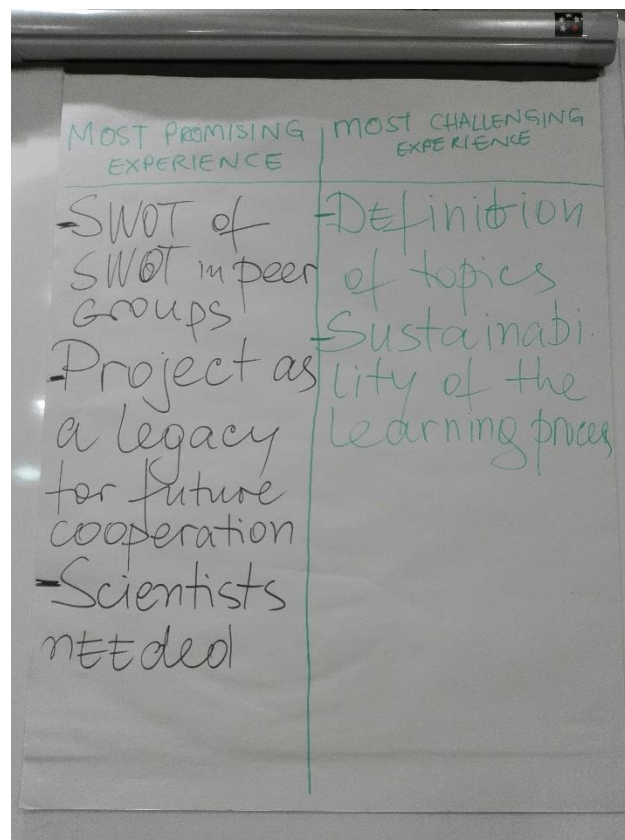 MOST PROMISING
EXPERIENCE
- SWOT of
SWOT in peer
GROUPS
- Project as
a legacy
for future
cooperation
- Scientists
nEEded
MOST CHALLENGING
EXPERIENCE
- DEfinition
of topics
- Sustainabi-
lity of the
learning proces